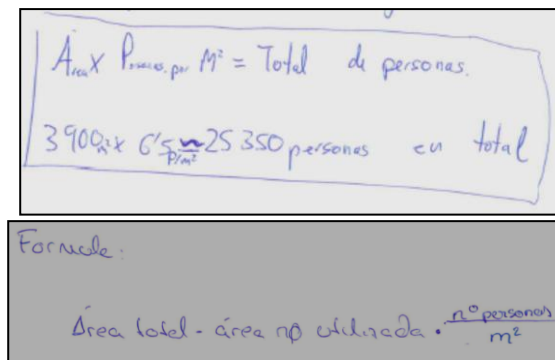 Área x Personas por M² = Total de personas.
3900 m² x 6'5 P/m² ≈ 25 350 personas en total
Formula:
Área total - área no utilizada · nº personas / m²